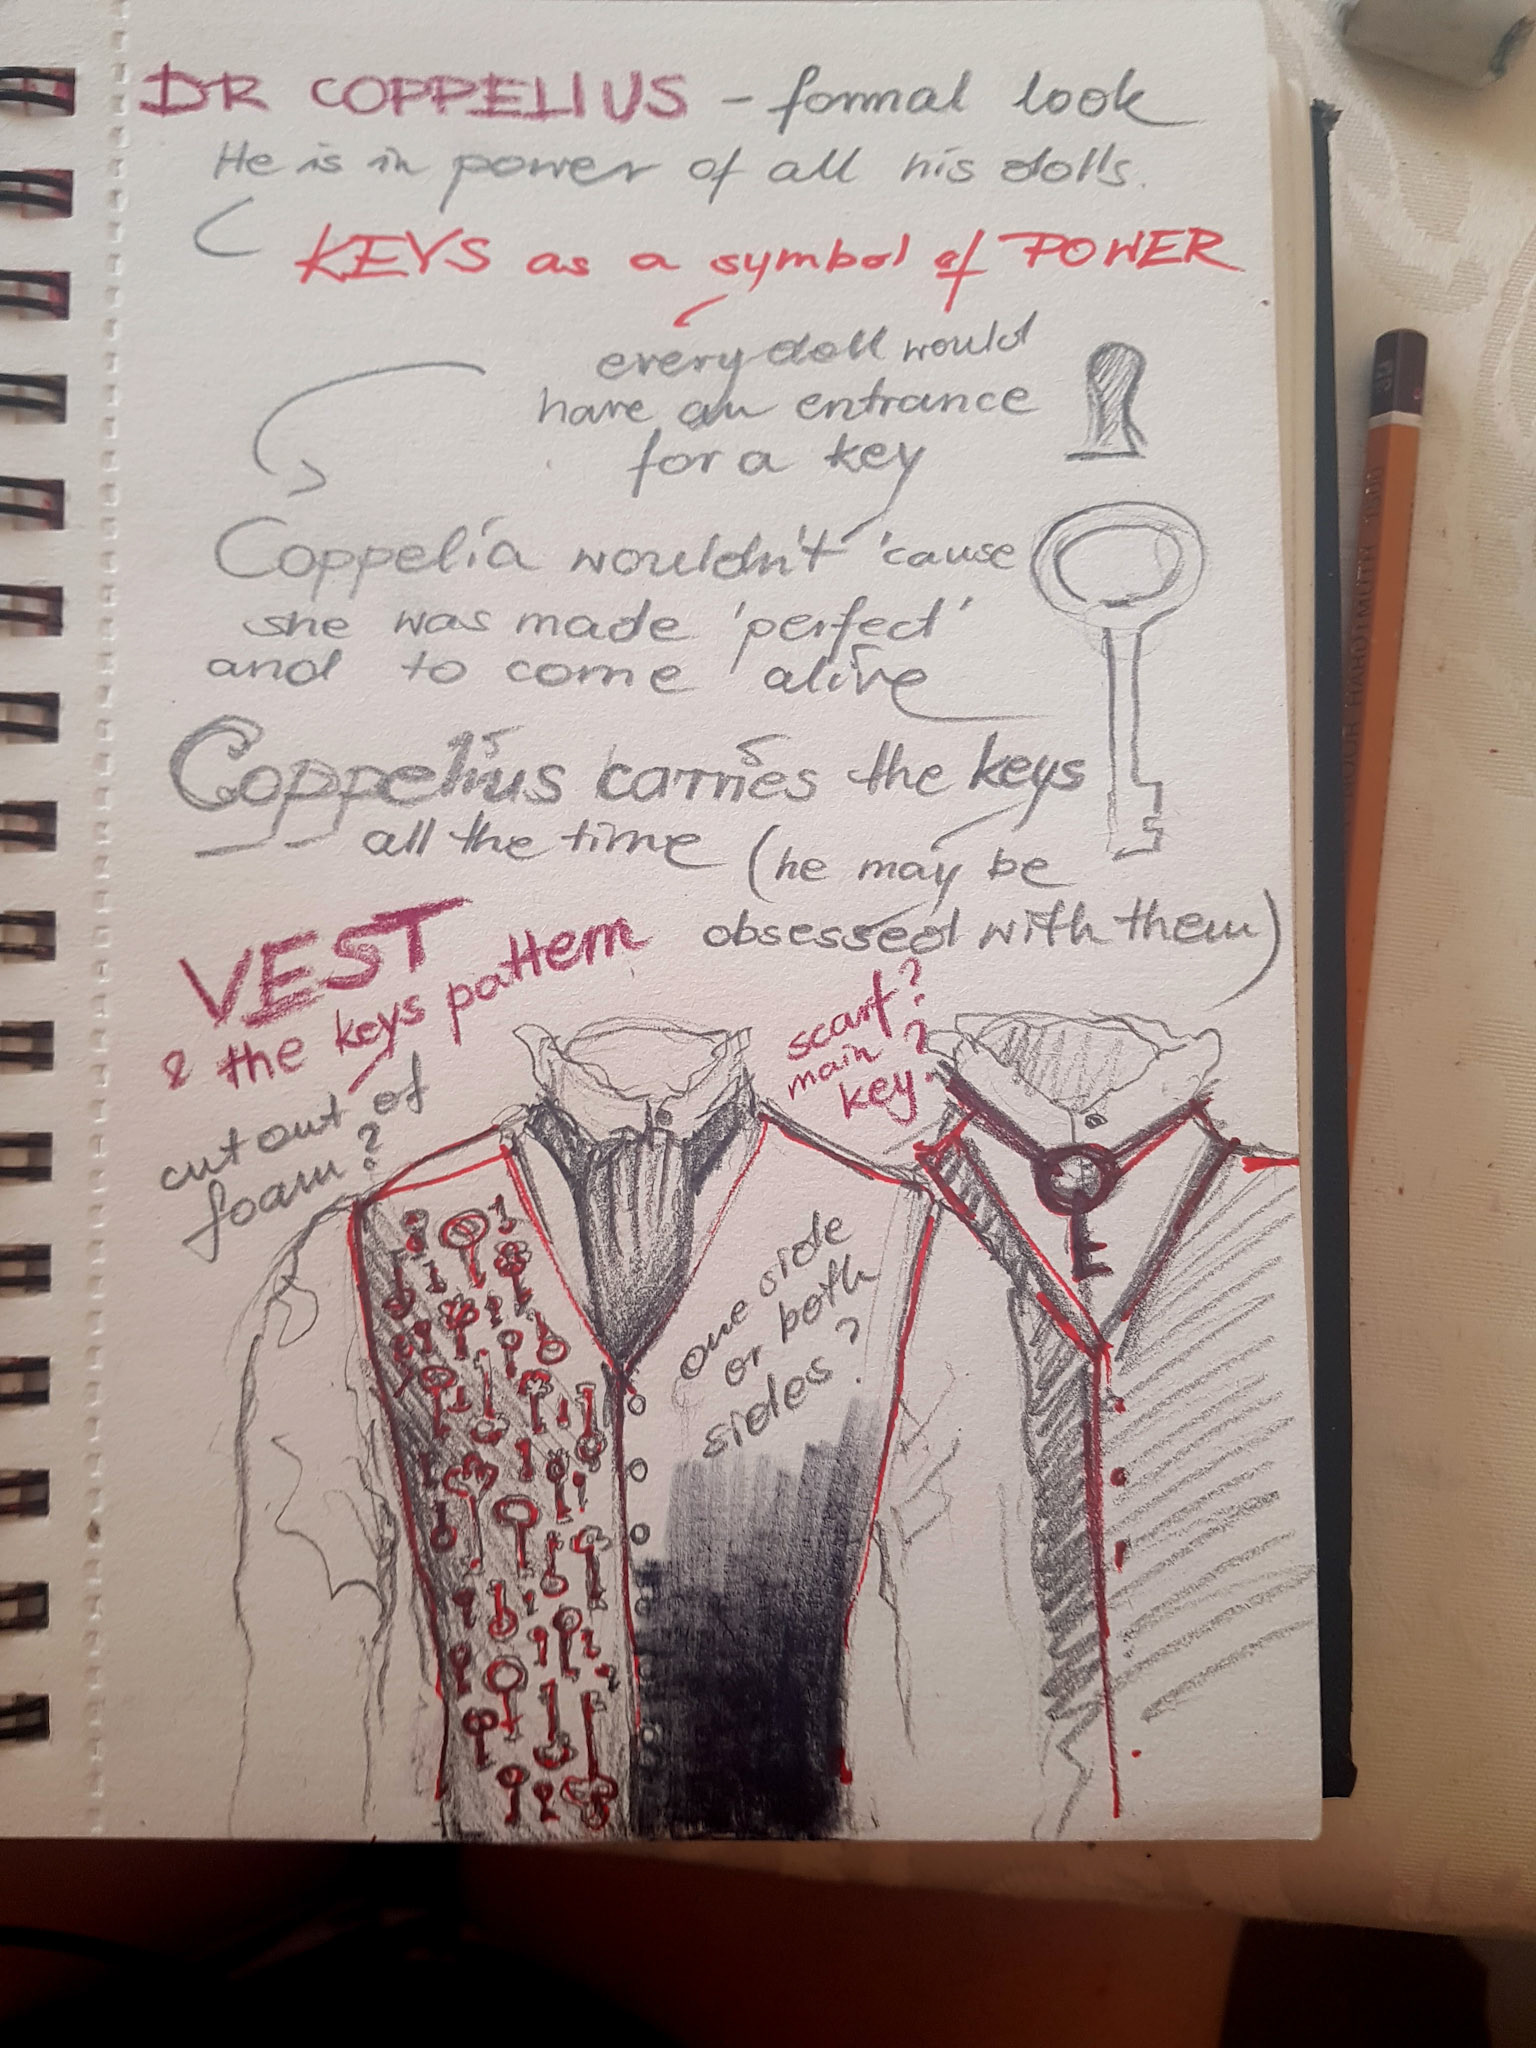 DR COPPELIUS - formal look
He is in power of all his dolls.
KEYS as a symbol of POWER
every doll would
have an entrance
for a key
Coppelia wouldn't 'cause
she was made 'perfect'
and to come alive
Coppelius carries the keys
all the time (he may be
obsessed with them)
VEST
& the keys pattern
cut out of
foam?
scarf?
main?
key.
one side
or both
sides?